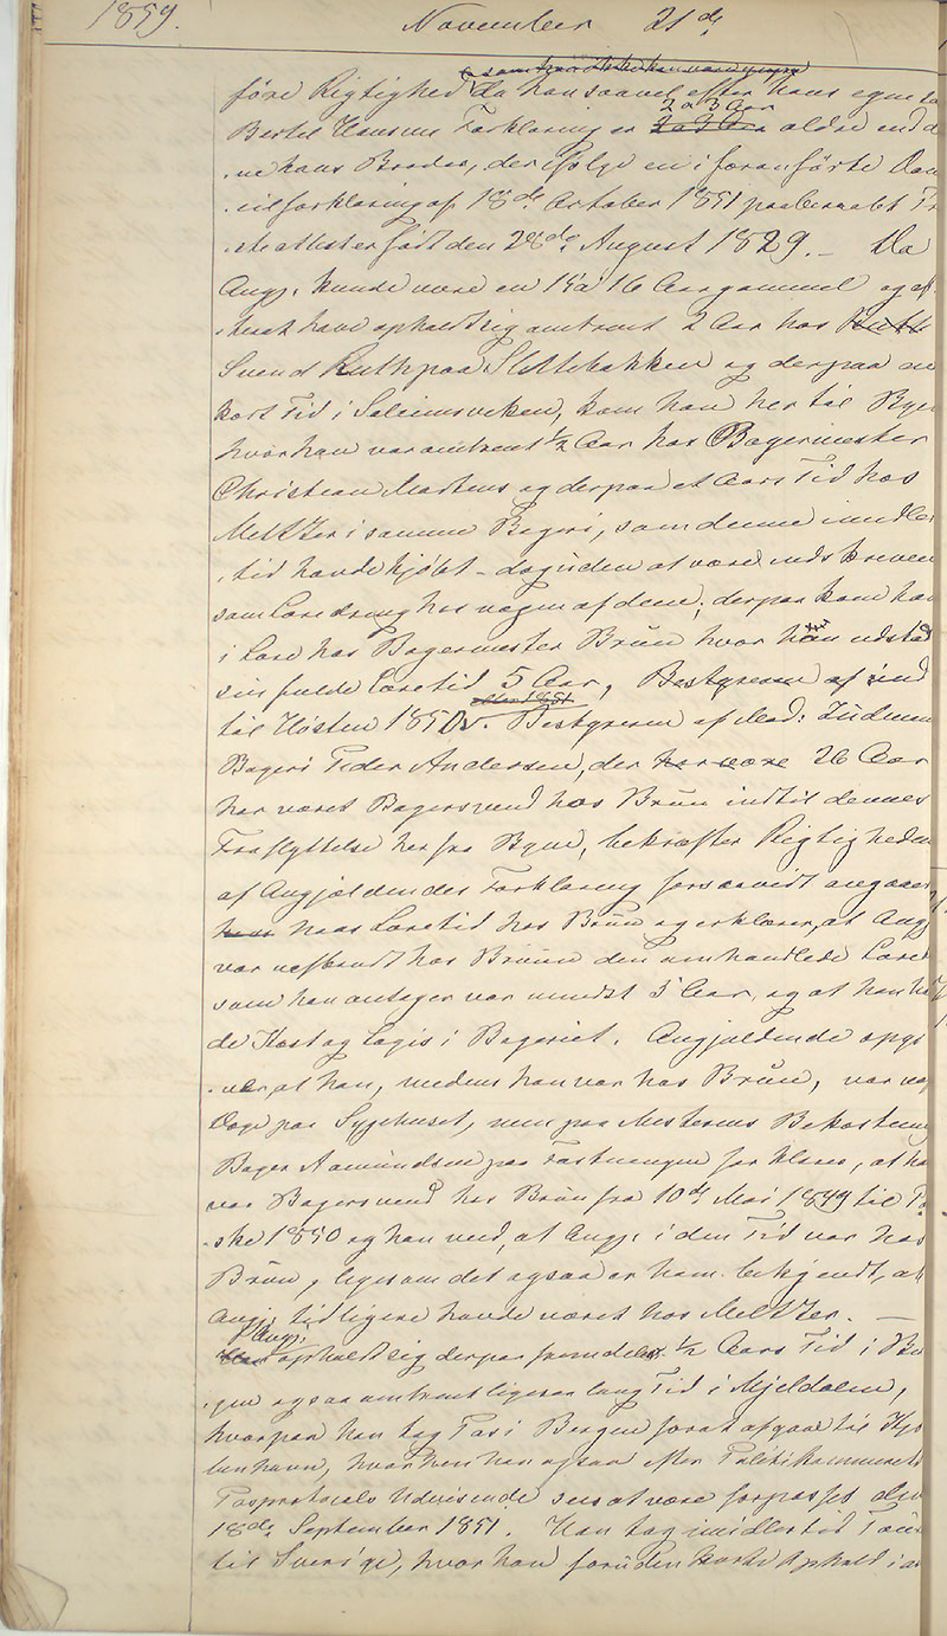 1859.
November 21de
føre Rigtighed da han saavel efter hans egne
Bertel Hansens Forklaring er 2 a 3 Aar ældre end
ne hans Broder, der ifølge en i foranførte
cilforklaring af 18de October 1851 paaberaabt
ste Attest er født den 28de August 1829. – Da
Angj. kunde være en 15 a 16 Aar gammel og
have opholdt sig omtrent 2 Aar hos
Svend Ruth paa Slettebakken og derpaa en
kort Tid i Salemsviken, kom han her til Bye
hvor han var omtrent 1/2 Aar hos Bagermester
Christian Martens og derpaa et Aars Tid hos
Meltzer i samme Bageri, som denne imidler
tid havde kjøbt – dog uden at være indskreven
som Læredreng hos nogen af dem; derpaa kom han
i Lære hos Bagermester Brün hvor han udstod
sin fulde Læretid 5 Aar, Bestyreren af ind
til Høsten 1850. Bestyreren af Mad:
Bageri Peder Andersen, der har være 26 Aar
har været Bagersvend hos Brün indtil dennes
Fraflyttelse her fra Byen, bekræfter Rigtigheden
af Angjældendes Forklaring forsaavidt angaaer
hans Læretid hos Brün og erklærer, at Angj
var uafbrudt hos Brün den omhandlede Læret
som han antager var mindst 5 Aar, og at han hav
de Kost og Logis i Bageriet. Angjældende opgi
ver, at han, medens han var hos Brün, var
Dage paa Sygehuset, men paa Mesterens Bekostning
Bager Aamundsen paa forklarer, at han
var Bagersvend hos Brün fra 10de Mai 1849 til Paa
ske 1850 og han ved, at Angj. i den Tid var hos
Brün, ligesom det ogsaa er ham bekjendt, at
Angj. tidligere havde været hos Meltzer. —
Angj.
opholdt sig derpaa fremdeles 1/2 Aars Tid i Ber
gen og saa omtrent ligesaa lang Tid i Mjeldalen,
hvorpaa han tog Pas i Bergen for at afgaae til Kjø
benhavn, hvorhen han ogsaa efter Politikammerets
Pasprotocols Udvisende sees at være forpasset den
18de September 1851. Han tog imidlertid
til Sverige, hvor han foruden korte Ophold i